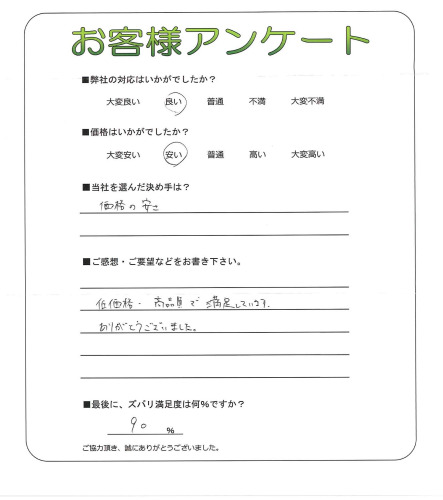 お客様アンケート
■弊社の対応はいかがでしたか？
大変良い 良い 普通 不満 大変不満
■価格はいかがでしたか？
大変安い 安い 普通 高い 大変高い
■当社を選んだ決め手は？
価格の安さ
■ご感想・ご要望などをお書き下さい。
低価格・高品質で満足しています.
ありがとうございました。
■最後に、ズバリ満足度は何%ですか？
90 %
ご協力頂き、誠にありがとうございました。